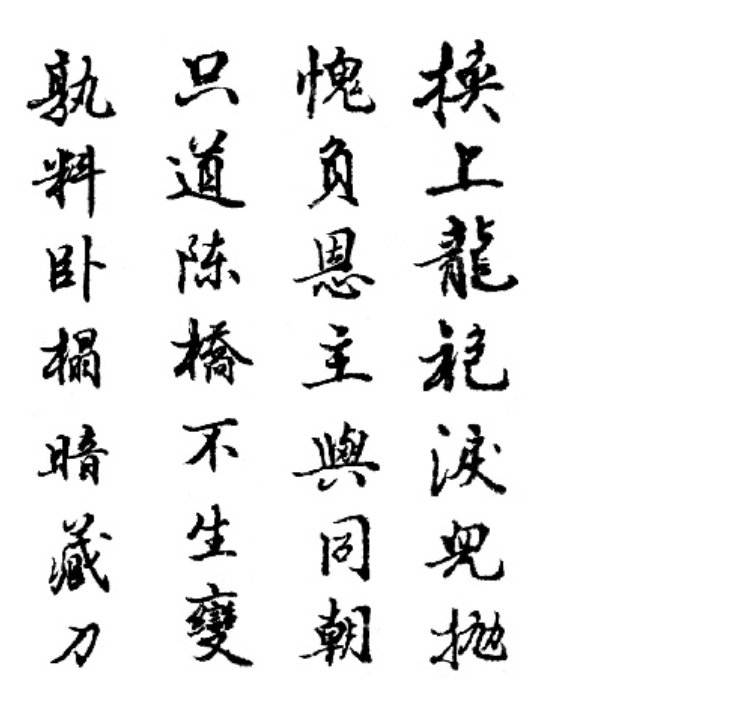 換上龍袍淚兒拋
愧負恩主與同朝
只道陳橋不生變
孰料卧榻暗藏刀